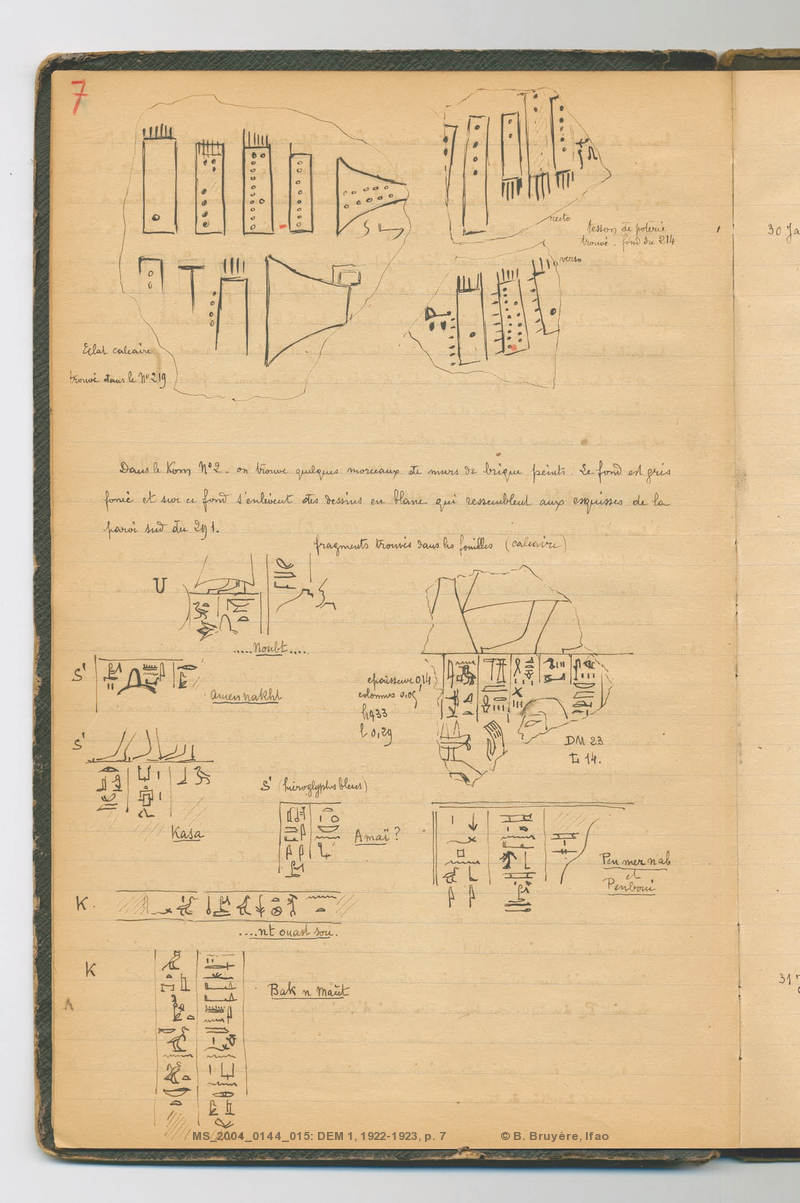 7
recto
tesson de poterie
trouvé - fond du 214
verso
30 Ja
Eclat calcaire
trouvé dans le N° 219
Dans le Kom N° 2. on trouve quelques morceaux de murs de brique peints. Le fond est gris
foncé et sur ce fond s'enlèvent des dessins en blanc qui ressemblent aux esquisses de la
paroi sud du 291.
fragments trouvés dans les fouilles (calcaire)
U
.....Noubt....
S'
Amen nakht
epaisseur 0,14
colonnes 0,05
h 0,33
l 0,29
DM 23
S'
Kasa
S' (hieroglyphes bleus)
Amaï ?
Pen mer nab
et
Penboui
K.
....nt ouast sou.
K
Bak n Maût
A
31
MS_2004_0144_015: DEM 1, 1922-1923, p. 7 © B. Bruyère, Ifao